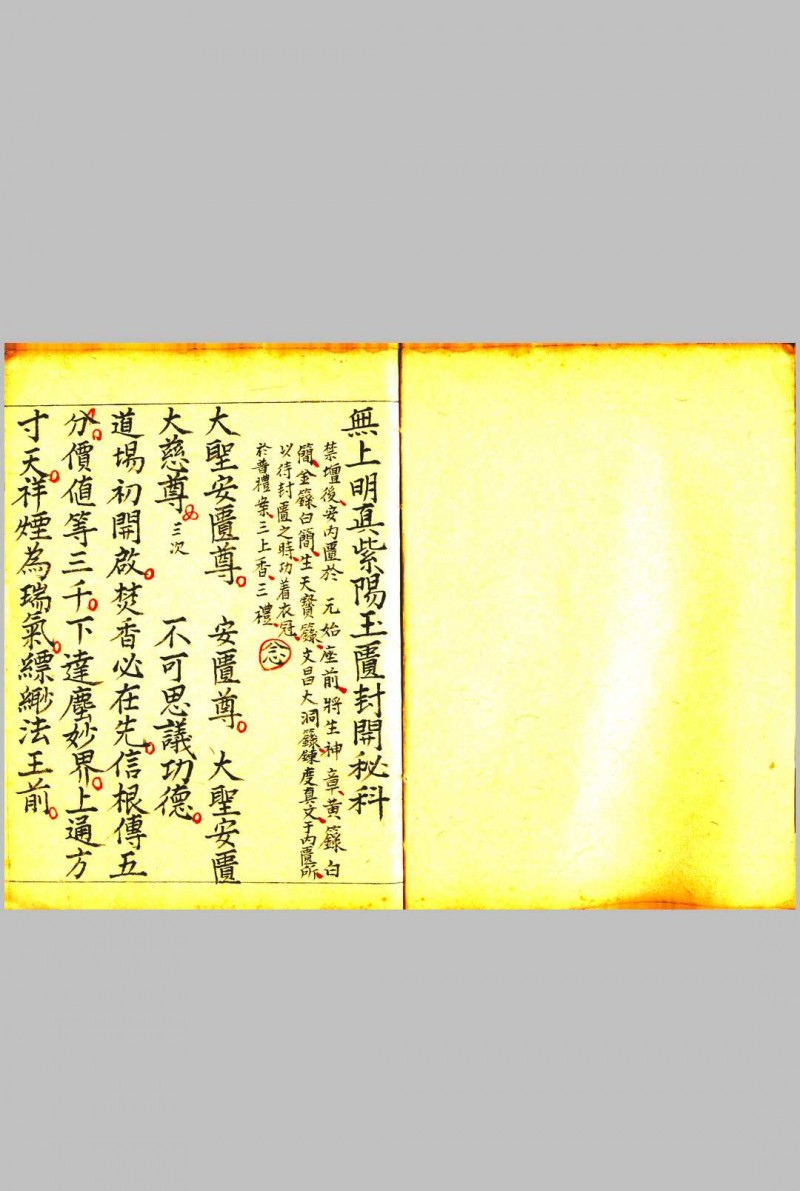 無上明真紫陽玉匱封開秘科
禁壇後安內匱於 元始座前將生神章黃籙白
簡金籙白簡生天寶籙文昌大洞籙鍊度真文于內匱所
以待封匱之時功着衣冠
於普禮案三上香三禮 念
大聖安匱尊 安匱尊 大聖安匱
大慈尊 三次 不可思議功德
道場初開啟焚香必在先信根傳五
分價值等三千下達塵妙界上通方
寸天祥煙為瑞氣縹緲法王前